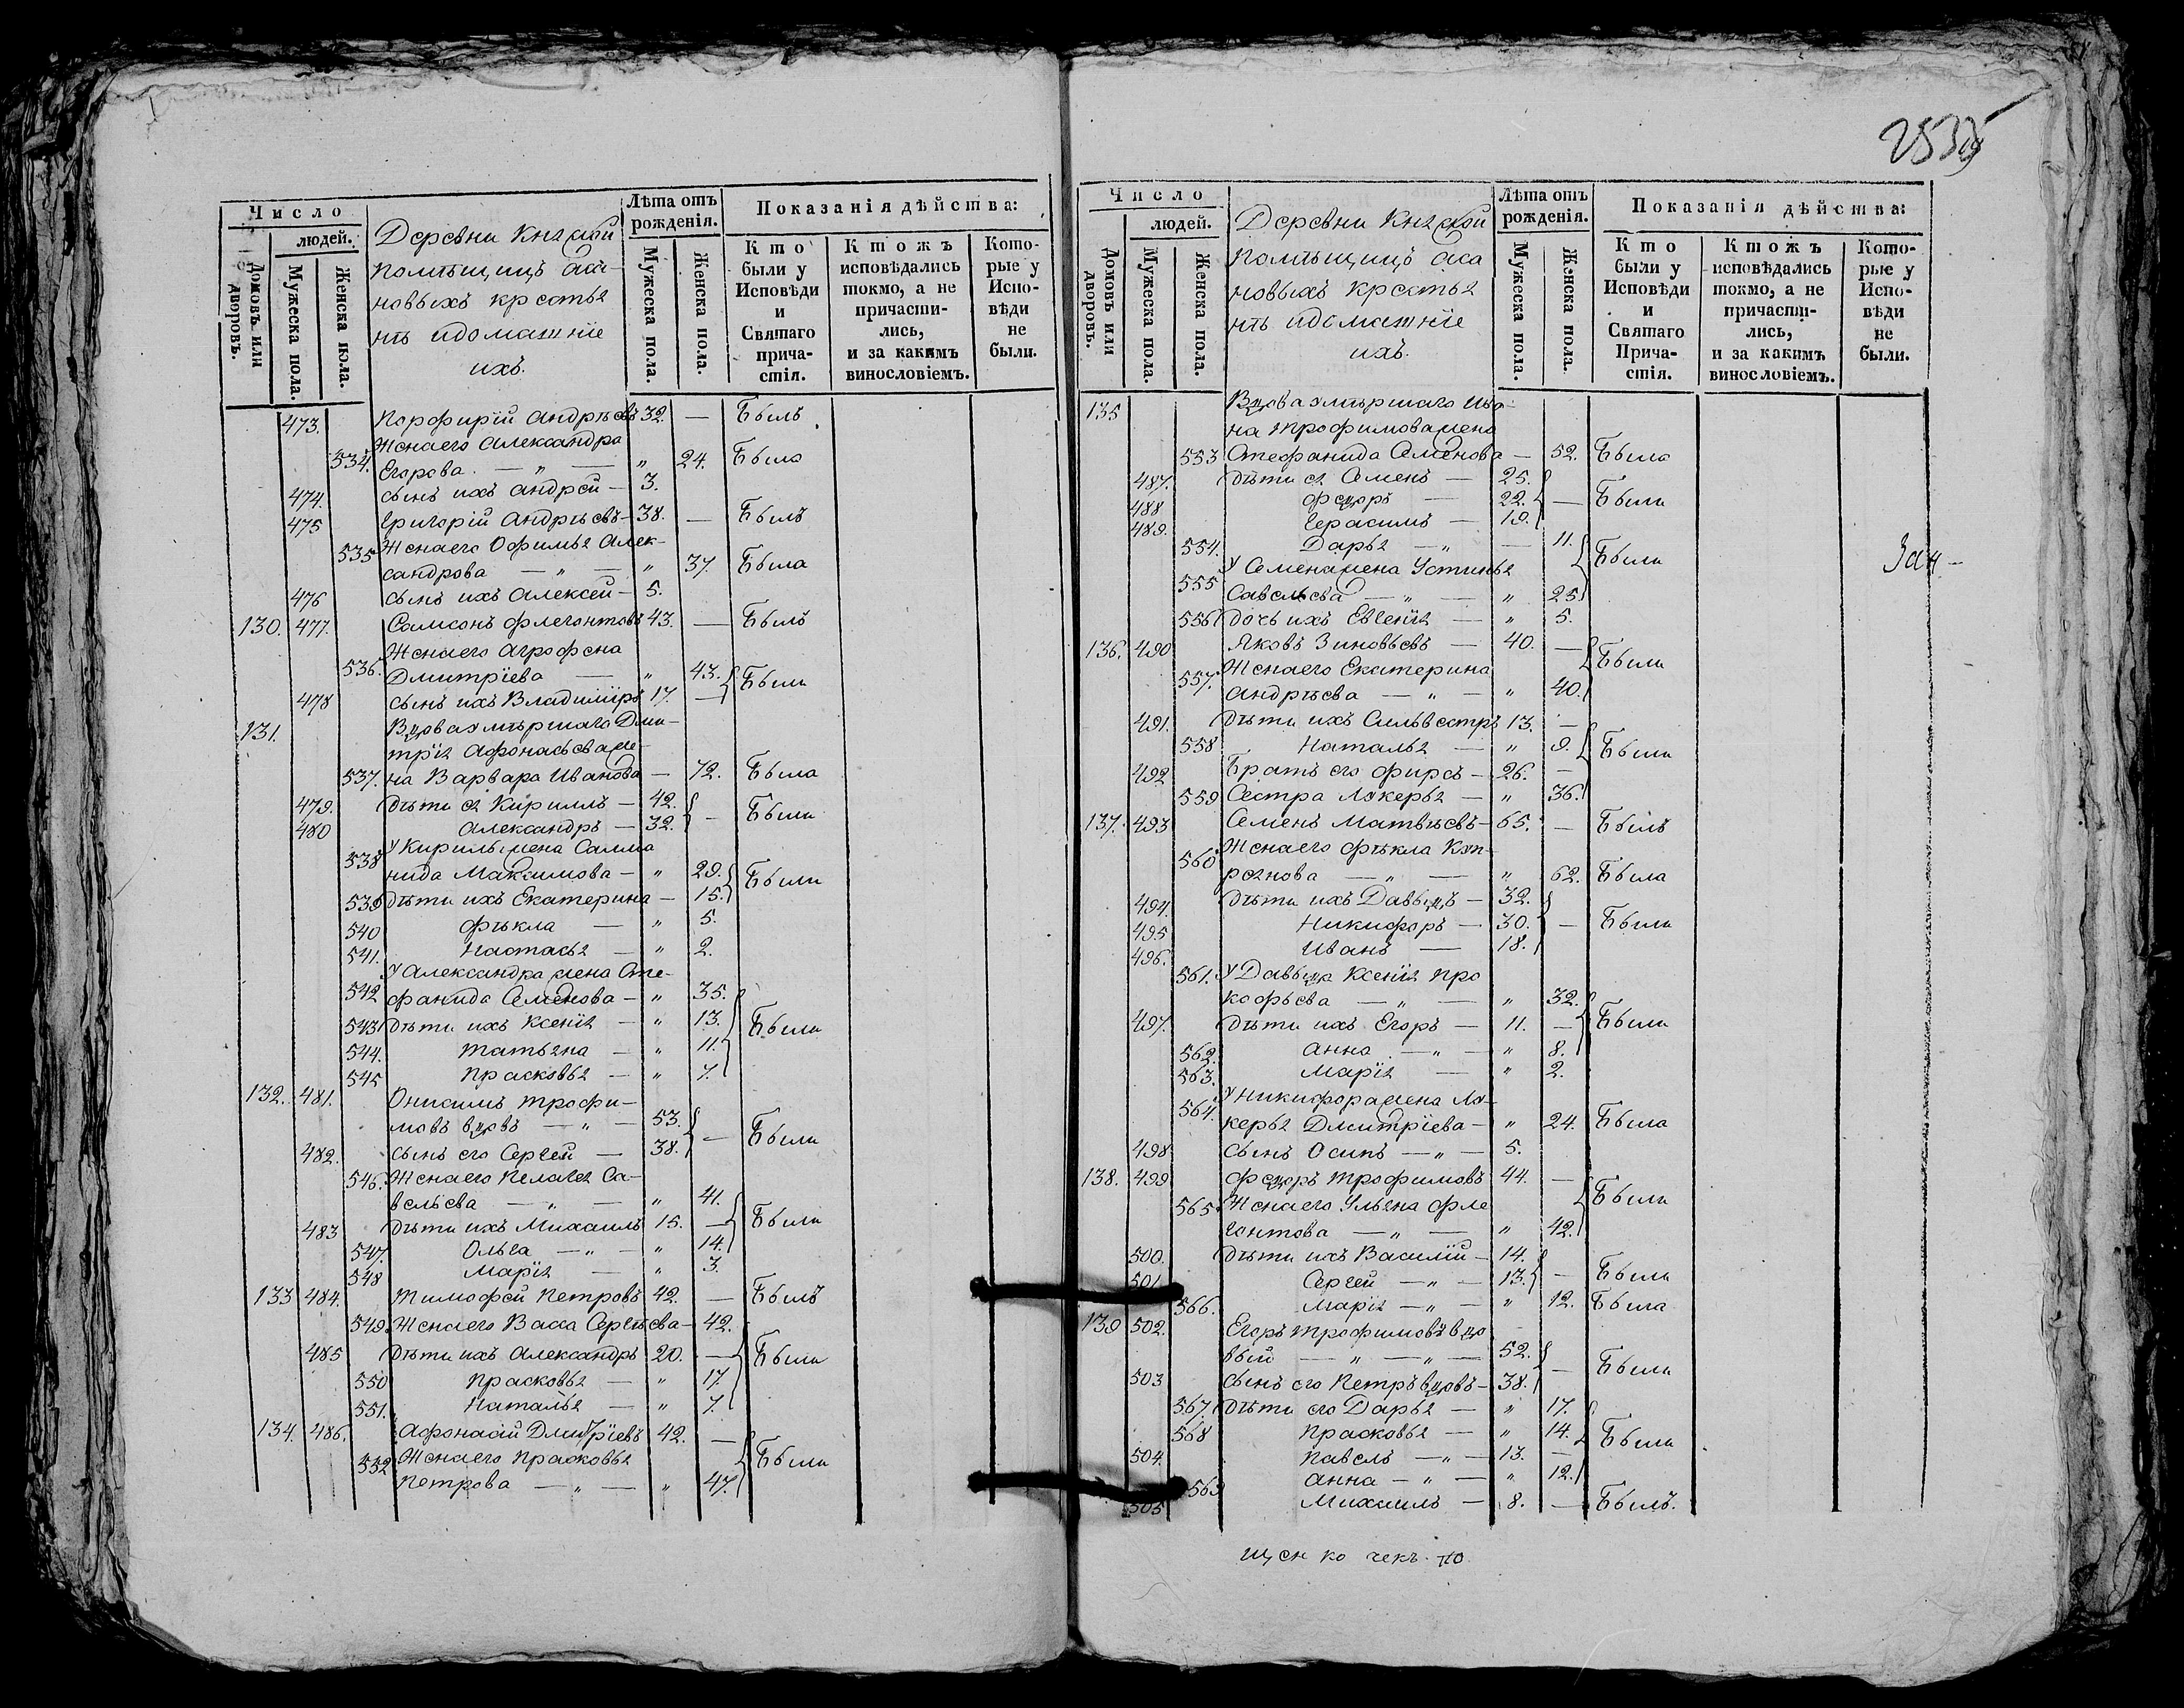 Число
людей.
Домовъ или дворовъ.
Мужеска пола.
Женска пола.
Деревни Кня
помѣщицъ Аса-
новыхъ крестья
нѣ идомашніе
ихъ.
Лѣта отъ
рожденія.
Мужеска пола.
Женска пола.
Показанія дѣйства:
Кто
были у
Исповѣди
и
Святаго
прича-
стія.
Ктожъ
исповѣдались
токмо, а не
причасти-
лись,
и за какимъ
винословіемъ.
Кото-
рые у
Испо-
вѣди
не
были.
473. Порфирій Андрѣевъ 32. — Былъ
Женаего Александра
534. Егорова — „ — „ 24. Была
474. сынъ ихъ Андрей — 3.
475 Григорій Андрѣевъ — 38. — Былъ
535 Женаего Офимья Алек-
сандрова — „ — „ 37. Была
476 сынъ ихъ Алексей — 5.
130. 477. Самсонъ Флегонтовъ 43. — Былъ
Женаего Агрофена
536. Дмитріева — „ 43. Были
478 сынъ ихъ Владиміръ 17. —
131. Вдоваумѣршаго Дми-
трія Афонасьеваже-
537. на Варвара Иванова — 72. Была
479. дѣти ея Кирилъ — 42. — Были
480 Александръ — 32.
538 У Кирильжена Салма
нида Максимова — „ 29. Были
539 дѣти ихъ Екатерина — 15.
540 Фѣкла — „ 5.
541. Настасья — „ 2.
У Александра жена Сте-
542 фанида Семенова — „ 35.
543 дѣти ихъ Ксенія — „ 13. Были
544. Татьяна — „ 11.
545 Прасковья — „ 7.
132. 481. Онисимъ Трофи-
мовъ вдовъ — „ — 53. — Были
482. сынъ его Сергей — 38.
546. Женаего Пелагея Са-
вельева — „ — „ 41.
483 дѣти ихъ Михаилъ 15. — Были
547. Ольга — „ — „ 14.
548 Марія — „ 3.
133 484. Тимофей Петровъ 42. — Былъ
549. Женаего Васа Сергѣева — 42.
485 дѣти ихъ Александръ 20. — Были
550 Прасковья — „ 17.
551. Наталья — „ 7.
134. 486. Афонасій Дмитріевъ 42. —
552 Женаего Прасковья Были
Петрова — „ — „ 47.
2535
Число
людей.
Домовъ или дворовъ.
Мужеска пола.
Женска пола.
Деревни Кня
помѣщицъ Аса
новыхъ крестья
нѣ идомашніе
ихъ.
Лѣта отъ
рожденія.
Мужеска пола.
Женска пола.
Показанія дѣйства:
Кто
были у
Исповѣди
и
Святаго
Прича-
стія.
Ктожъ
исповѣдались
токмо, а не
причасти-
лись,
и за какимъ
винословіемъ.
Кото-
рые у
Испо-
вѣди
не
были.
135 Вдоваумѣршаго Ива-
на Трофимоважена
553 Стефанида Семенова — 52. Была
487. дѣти ея Семенъ — 25.
488 Федоръ — 22. — Были
489. Герасимъ — 19.
554. Дарья — „ — 11. Были
У Семенажена Устинья
555 Савельева — „ — „ 25.
556 дочь ихъ Евгенія — „ 5.
136. 490 Яковъ Зиновьевъ — 40. — Были
557. Женаего Екатерина
Андрѣева — „ — „ 40.
491. дѣти ихъ Сильвестръ 13. —
558 Наталья — „ 9. Были
492 Братъ его Фирсъ — 26. —
559 Сестра Лукерья — „ 36.
137. 493 Семенъ Матвѣевъ — 65. — Былъ
560 Женаего Фѣкла Куп-
реянова — „ — „ 62. Была
494. дѣти ихъ Давыдъ — 32.
495 Никифоръ — 30. — Были
496. Иванъ — 18.
561. У Давыда Ксенія Про
кофьева — „ — „ 32.
497. дѣти ихъ Егоръ — 11. — Были
562. Анна — „ — „ 8.
563. Марія — „ 2.
564. У Никифоражена Лу-
керья Дмитріева — „ 24. Была
498 сынъ Осипъ — „ — 5.
138. 499 Федоръ Трофимовъ 44. — Были
565 Женаего Ульяна Фле
гонтова — „ — „ 42.
500. дѣти ихъ Василій — 14.
501 Сергей — „ — 13. — Были
566. Марія — „ — „ 12. Была
139 502. Егоръ Трофимовъ вдо
вый — „ — „ — 52. — Были
503 сынъ его Петръ вдовъ — 38.
567. дѣти его Дарья — „ 17.
568 Прасковья — „ 14. Были
504. Павелъ — „ — 13. —
569 Анна — „ — „ 12.
505 Михаилъ — 8. — Былъ.